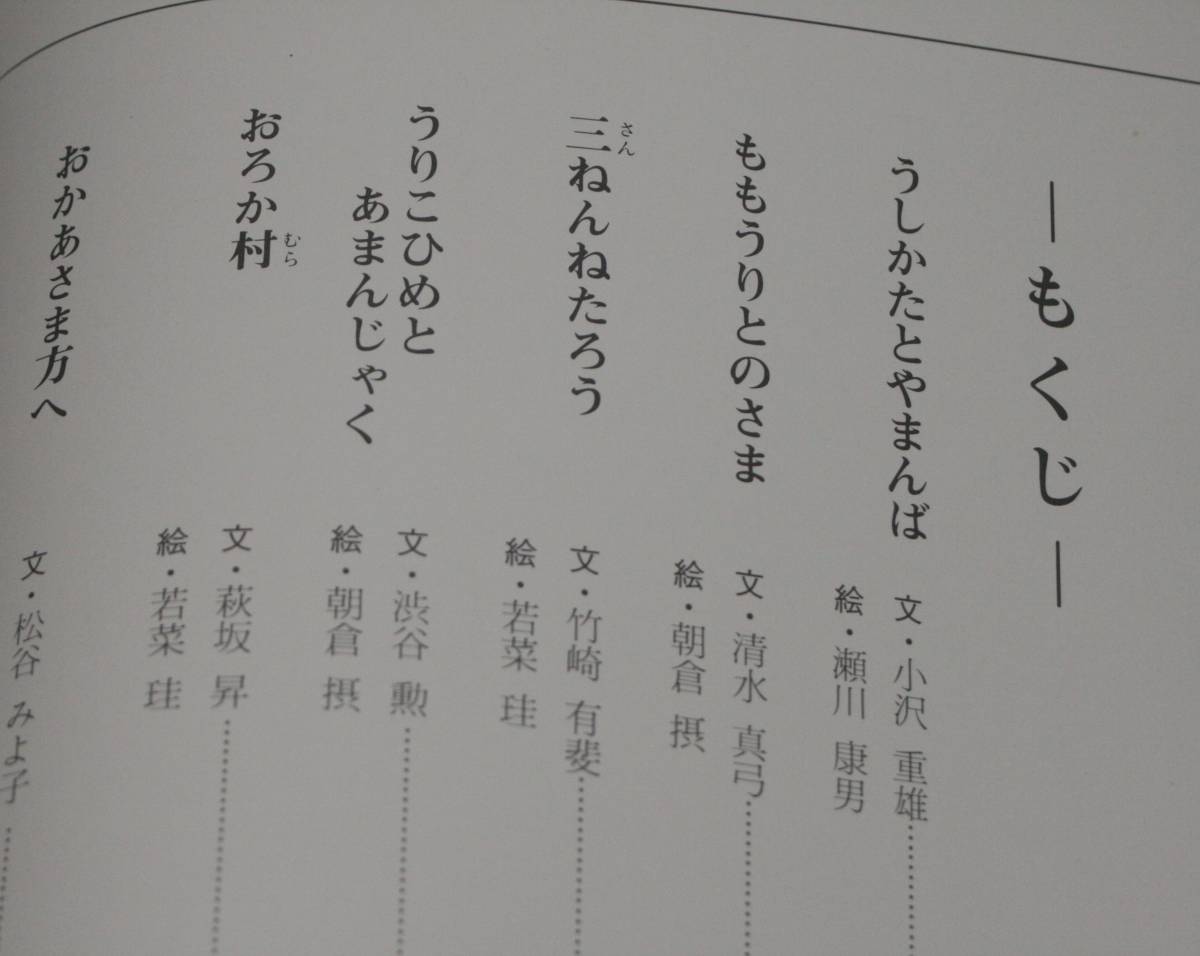 ―もくじ―
うしかたとやまんば
文・小沢 重雄
絵・瀬川 康男
ももうりとのさま
文・清水 真弓
絵・朝倉 摂
三ねんねたろう
さん
文・竹崎 有斐
絵・若菜 珪
うりこひめと
あまんじゃく
文・渋谷 勲
絵・朝倉 摂
おろか村
むら
文・萩坂 昇
絵・若菜 珪
おかあさま方へ
文・松谷 みよ子